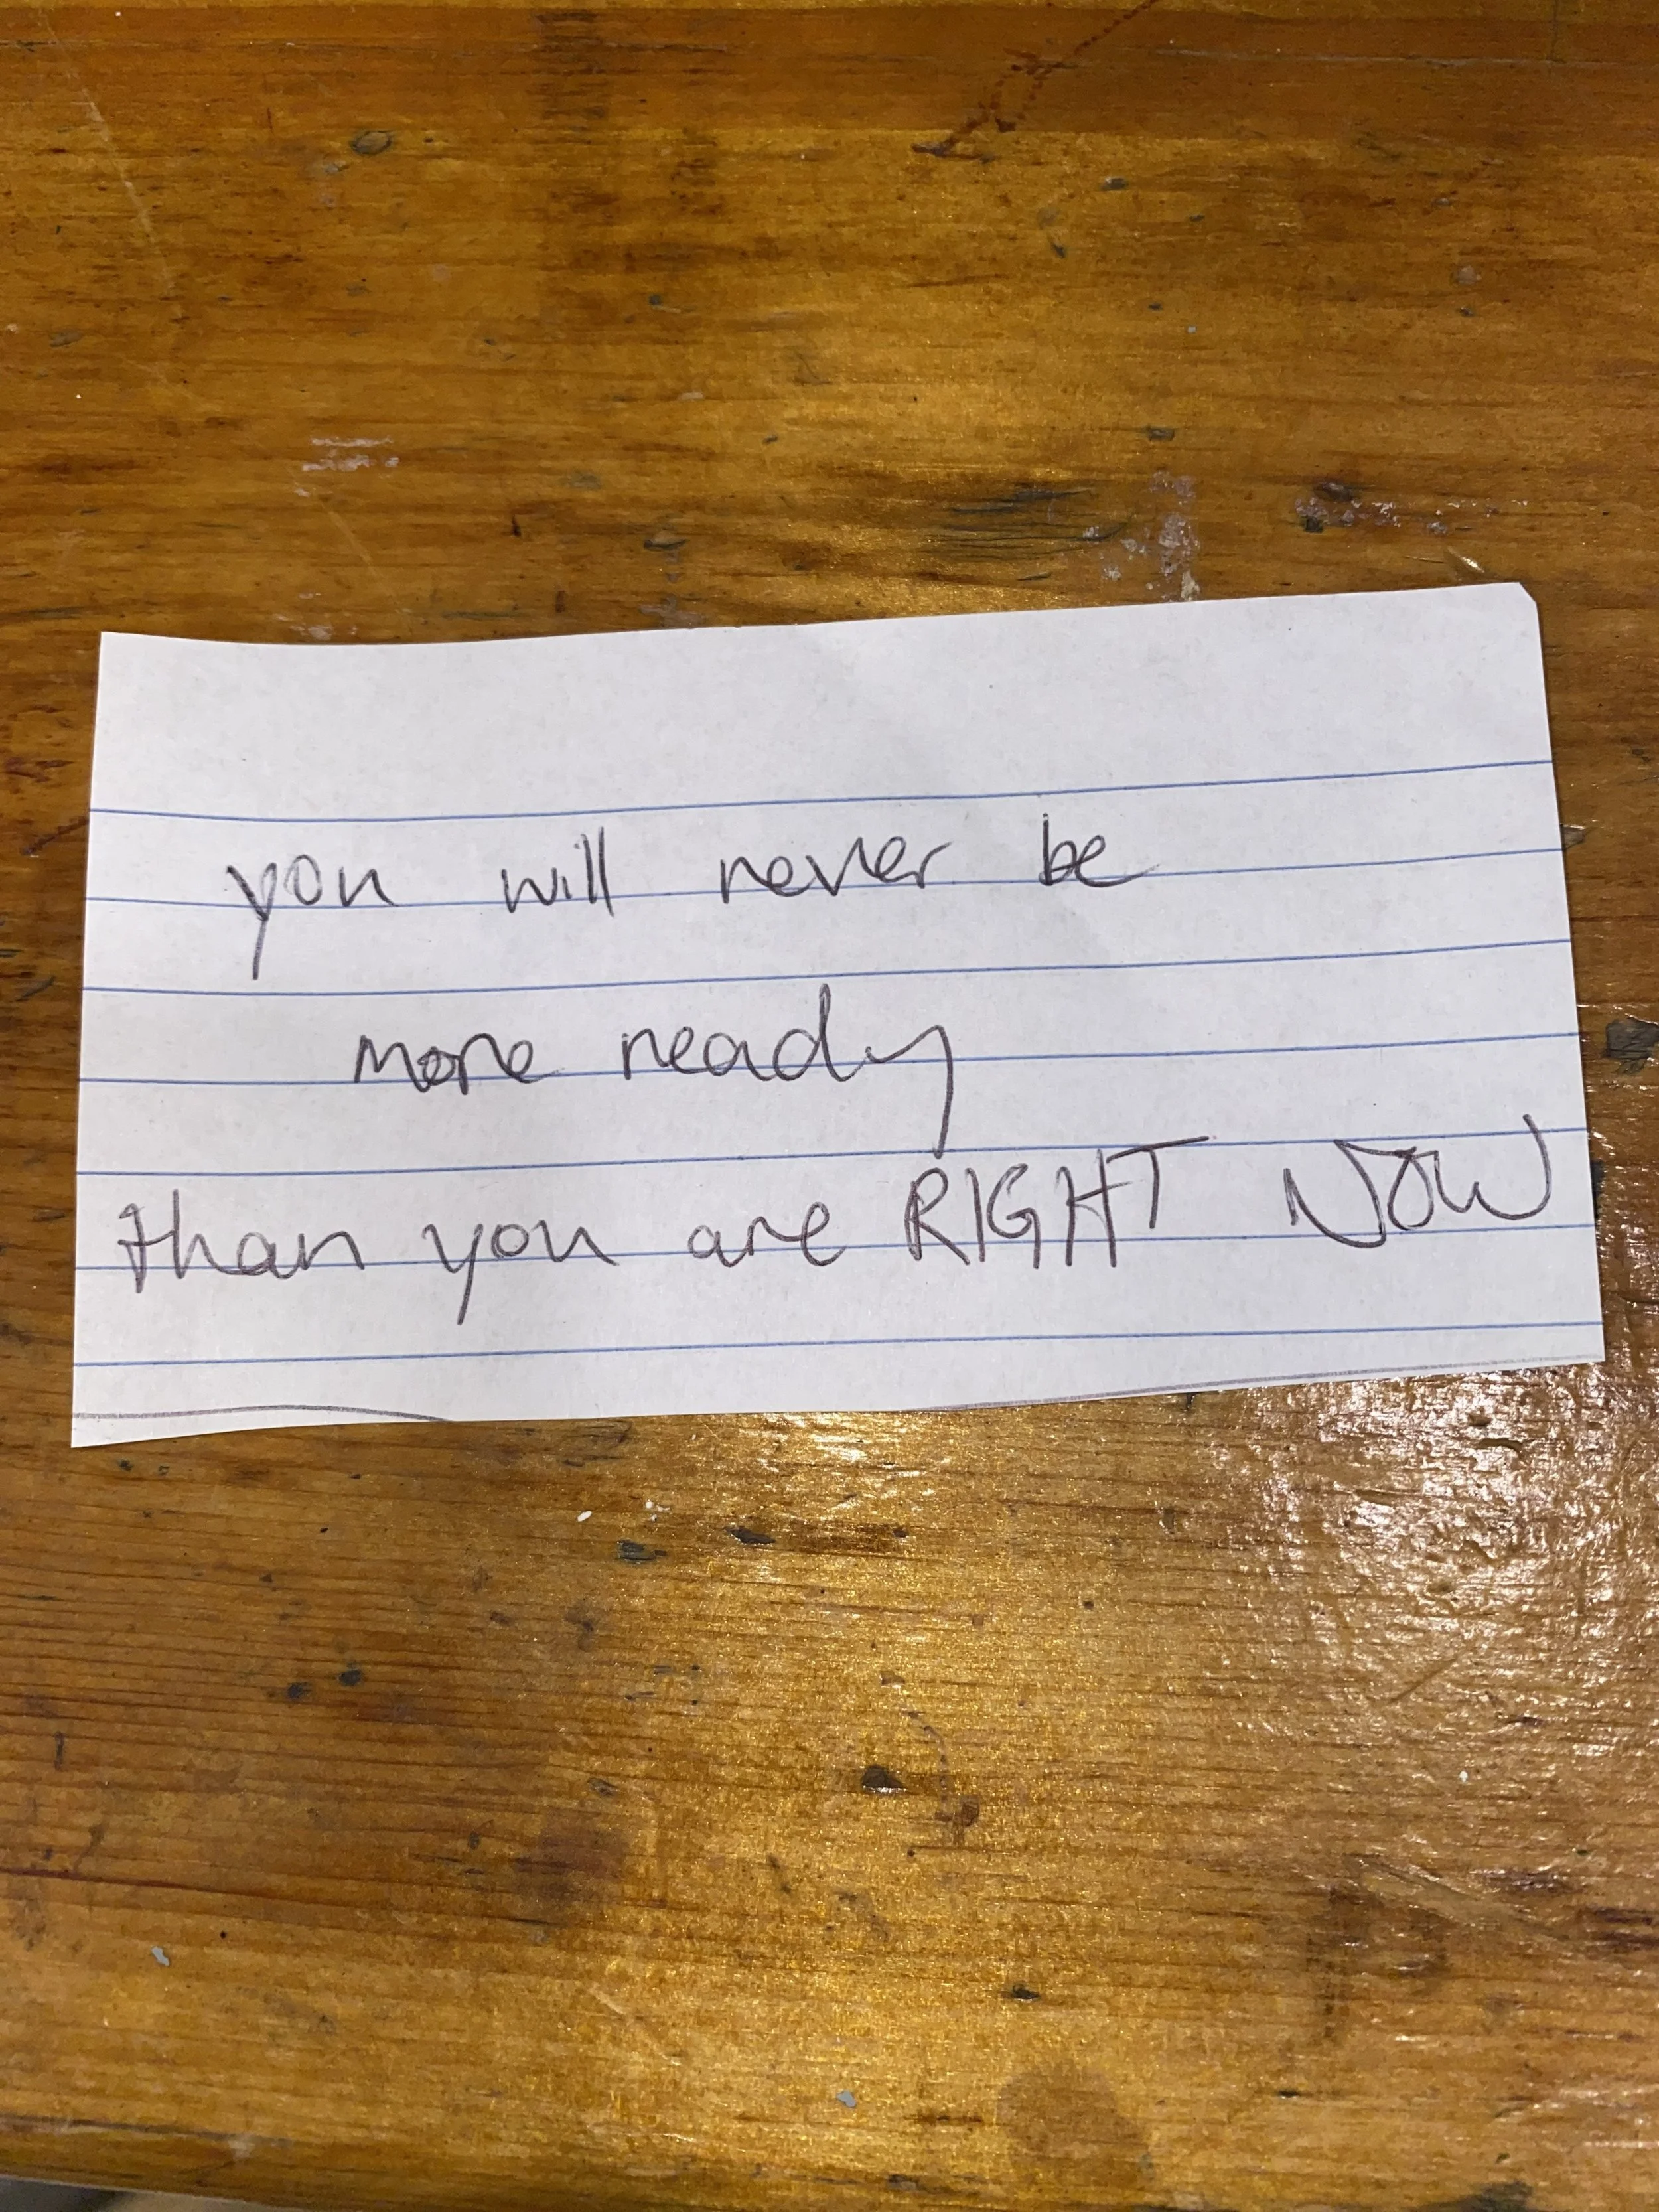 you will never be
more ready
than you are RIGHT NOW